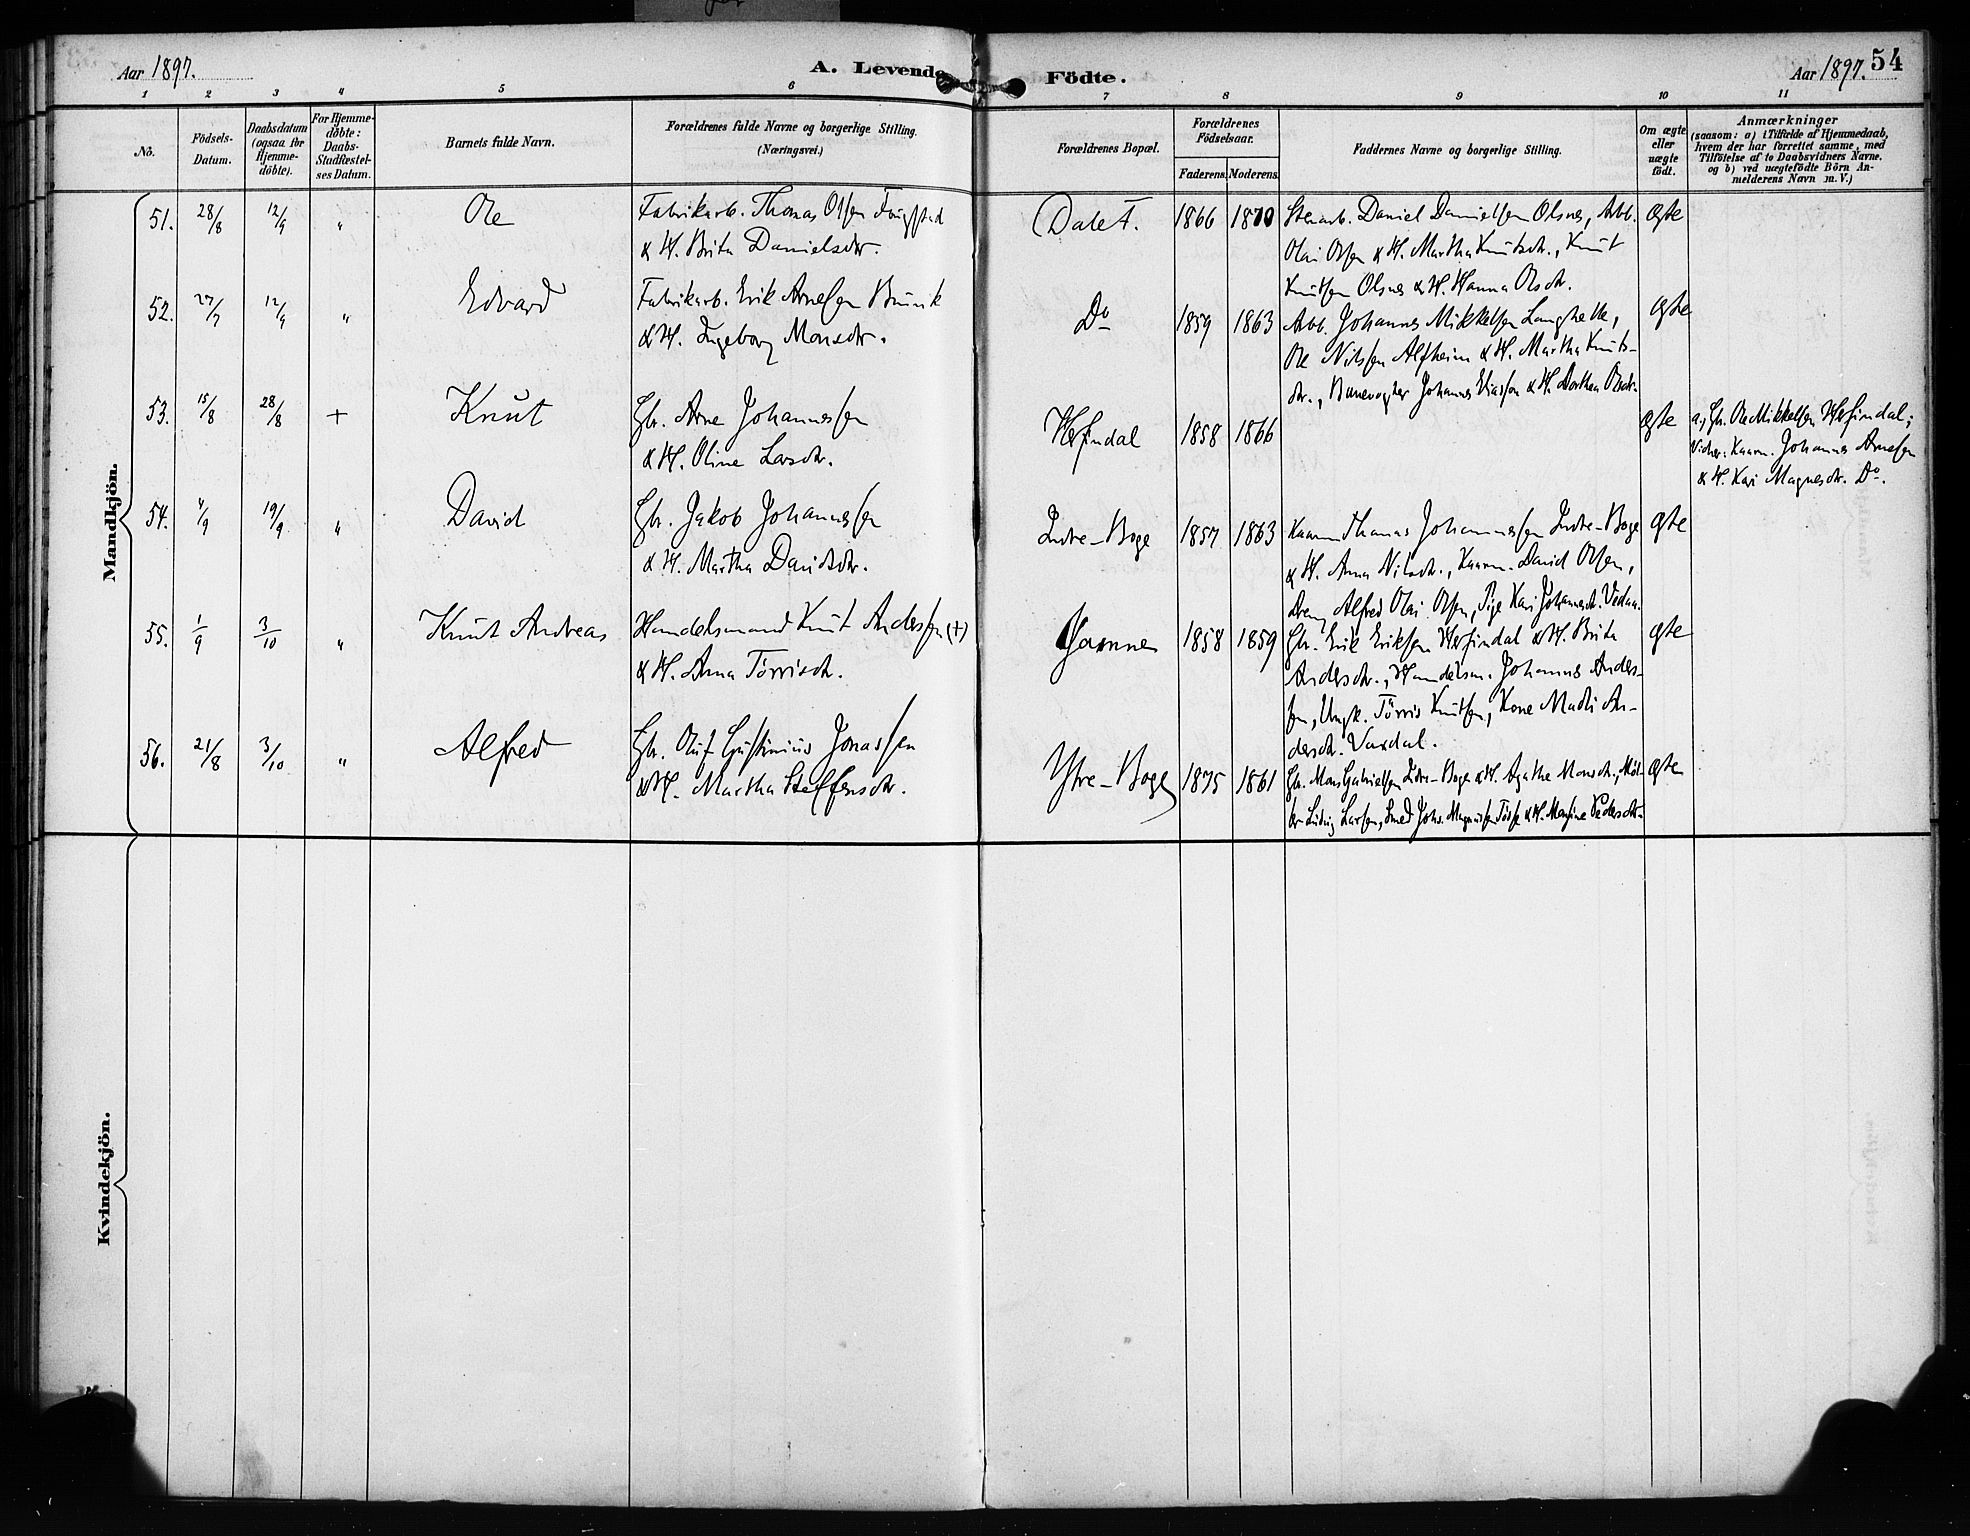 Aar 1897.
A. Levende Födte.
Aar 1897. 54
1 2 3 4 5 6 7 8 9 10 11
No.
Födsels-Datum.
Daabsdatum (ogsaa for Hjemme-döbte).
For Hjemme-döbte: Daabs-Stadfæstel-ses Datum.
Barnets fulde Navn.
Forældrenes fulde Navne og borgerlige Stilling. (Næringsvei.)
Forældrenes Bopæl.
Forældrenes Födselsaar.
Faderens. Moderens.
Faddernes Navne og borgerlige Stilling.
Om ægte eller uægte födt.
Anmærkninger
(saasom: a) i Tilfælde af Hjemmedaab,
hvem der har forrettet samme, med
Tilföielse af to Daabsvidners Navne.
og b) ved uægtefödte Börn An-
melderens Navn m. V.)
Mandkjön.
51. 28/8 12/9 " Ole
Fabrikarb. Thomas Olsen
& H. Brita Danielsdtr.
Dale F. 1866 1870
Stenarb. Daniel Danielsen Olsnes, Arb.
Olai Olsen & H. Martha Knutsdtr., Knut
Knutsen Olsnes & H. Hanna Olsdtr.
ægte
52. 27/7 12/9 " Edvard
Fabrikarb. Erik Arnesen
& H. Ingeborg Monsdtr.
Do 1859 1863
Arb. Johannes Mikkelsen Langhelle,
Ole Nilsen Alfheim & H. Martha Knuts-
dtr., Banevogter Johannes Eliassen & H. Dorthea Olsdtr.
ægte
53. 15/8 28/8 + Knut
Gbr. Arne Johannessen
& H. Oline Larsdtr.
Herfindal 1858 1866
ægte
a., Gbr. Ole Mikkelsen Herfindal;
Vidner: Kaarm. Johannes Arnesen
& H. Kari Magnesdtr. Do.
54. 4/9 19/9 " David
Gbr. Jakob Johannessen
& H. Martha Davidsdtr.
Indre-Boge 1857 1863
Kaarm Thomas Johannessen Indre-Boge
& H. Anna Nilsdtr., Kaarm. David Olsen,
Dreng Alfred Olai Olsen, Pige Kari Johannesdt. Vedaa.
ægte
55. 1/9 3/10 " Knut Andreas
Handelsmand Knut Andersen (+)
& H. Anna Törrisdtr.
Gammer 1858 1859
Gbr. Erik Eriksen Herfindal & H. Brita
Andersdtr., Handelsm. Johannes Anders-
sen, Ungk. Törris Knutsen, Kone Madli An-
dersdtr. Vaxdal.
ægte
56. 21/8 3/10 " Alfred
Gbr. Oluf Justinius Jonassen
& H. Martha Steffensdtr.
Ytre-Boge 1875 1861
Gbr. Mons Gabrielsen Indre-Boge & H. Agathe Monsdtr., Möl-
ler Ludvig Larsen, Smed Johs. Magnussen & H. Monsine Pedersdtr.
ægte
Kvindekjön.